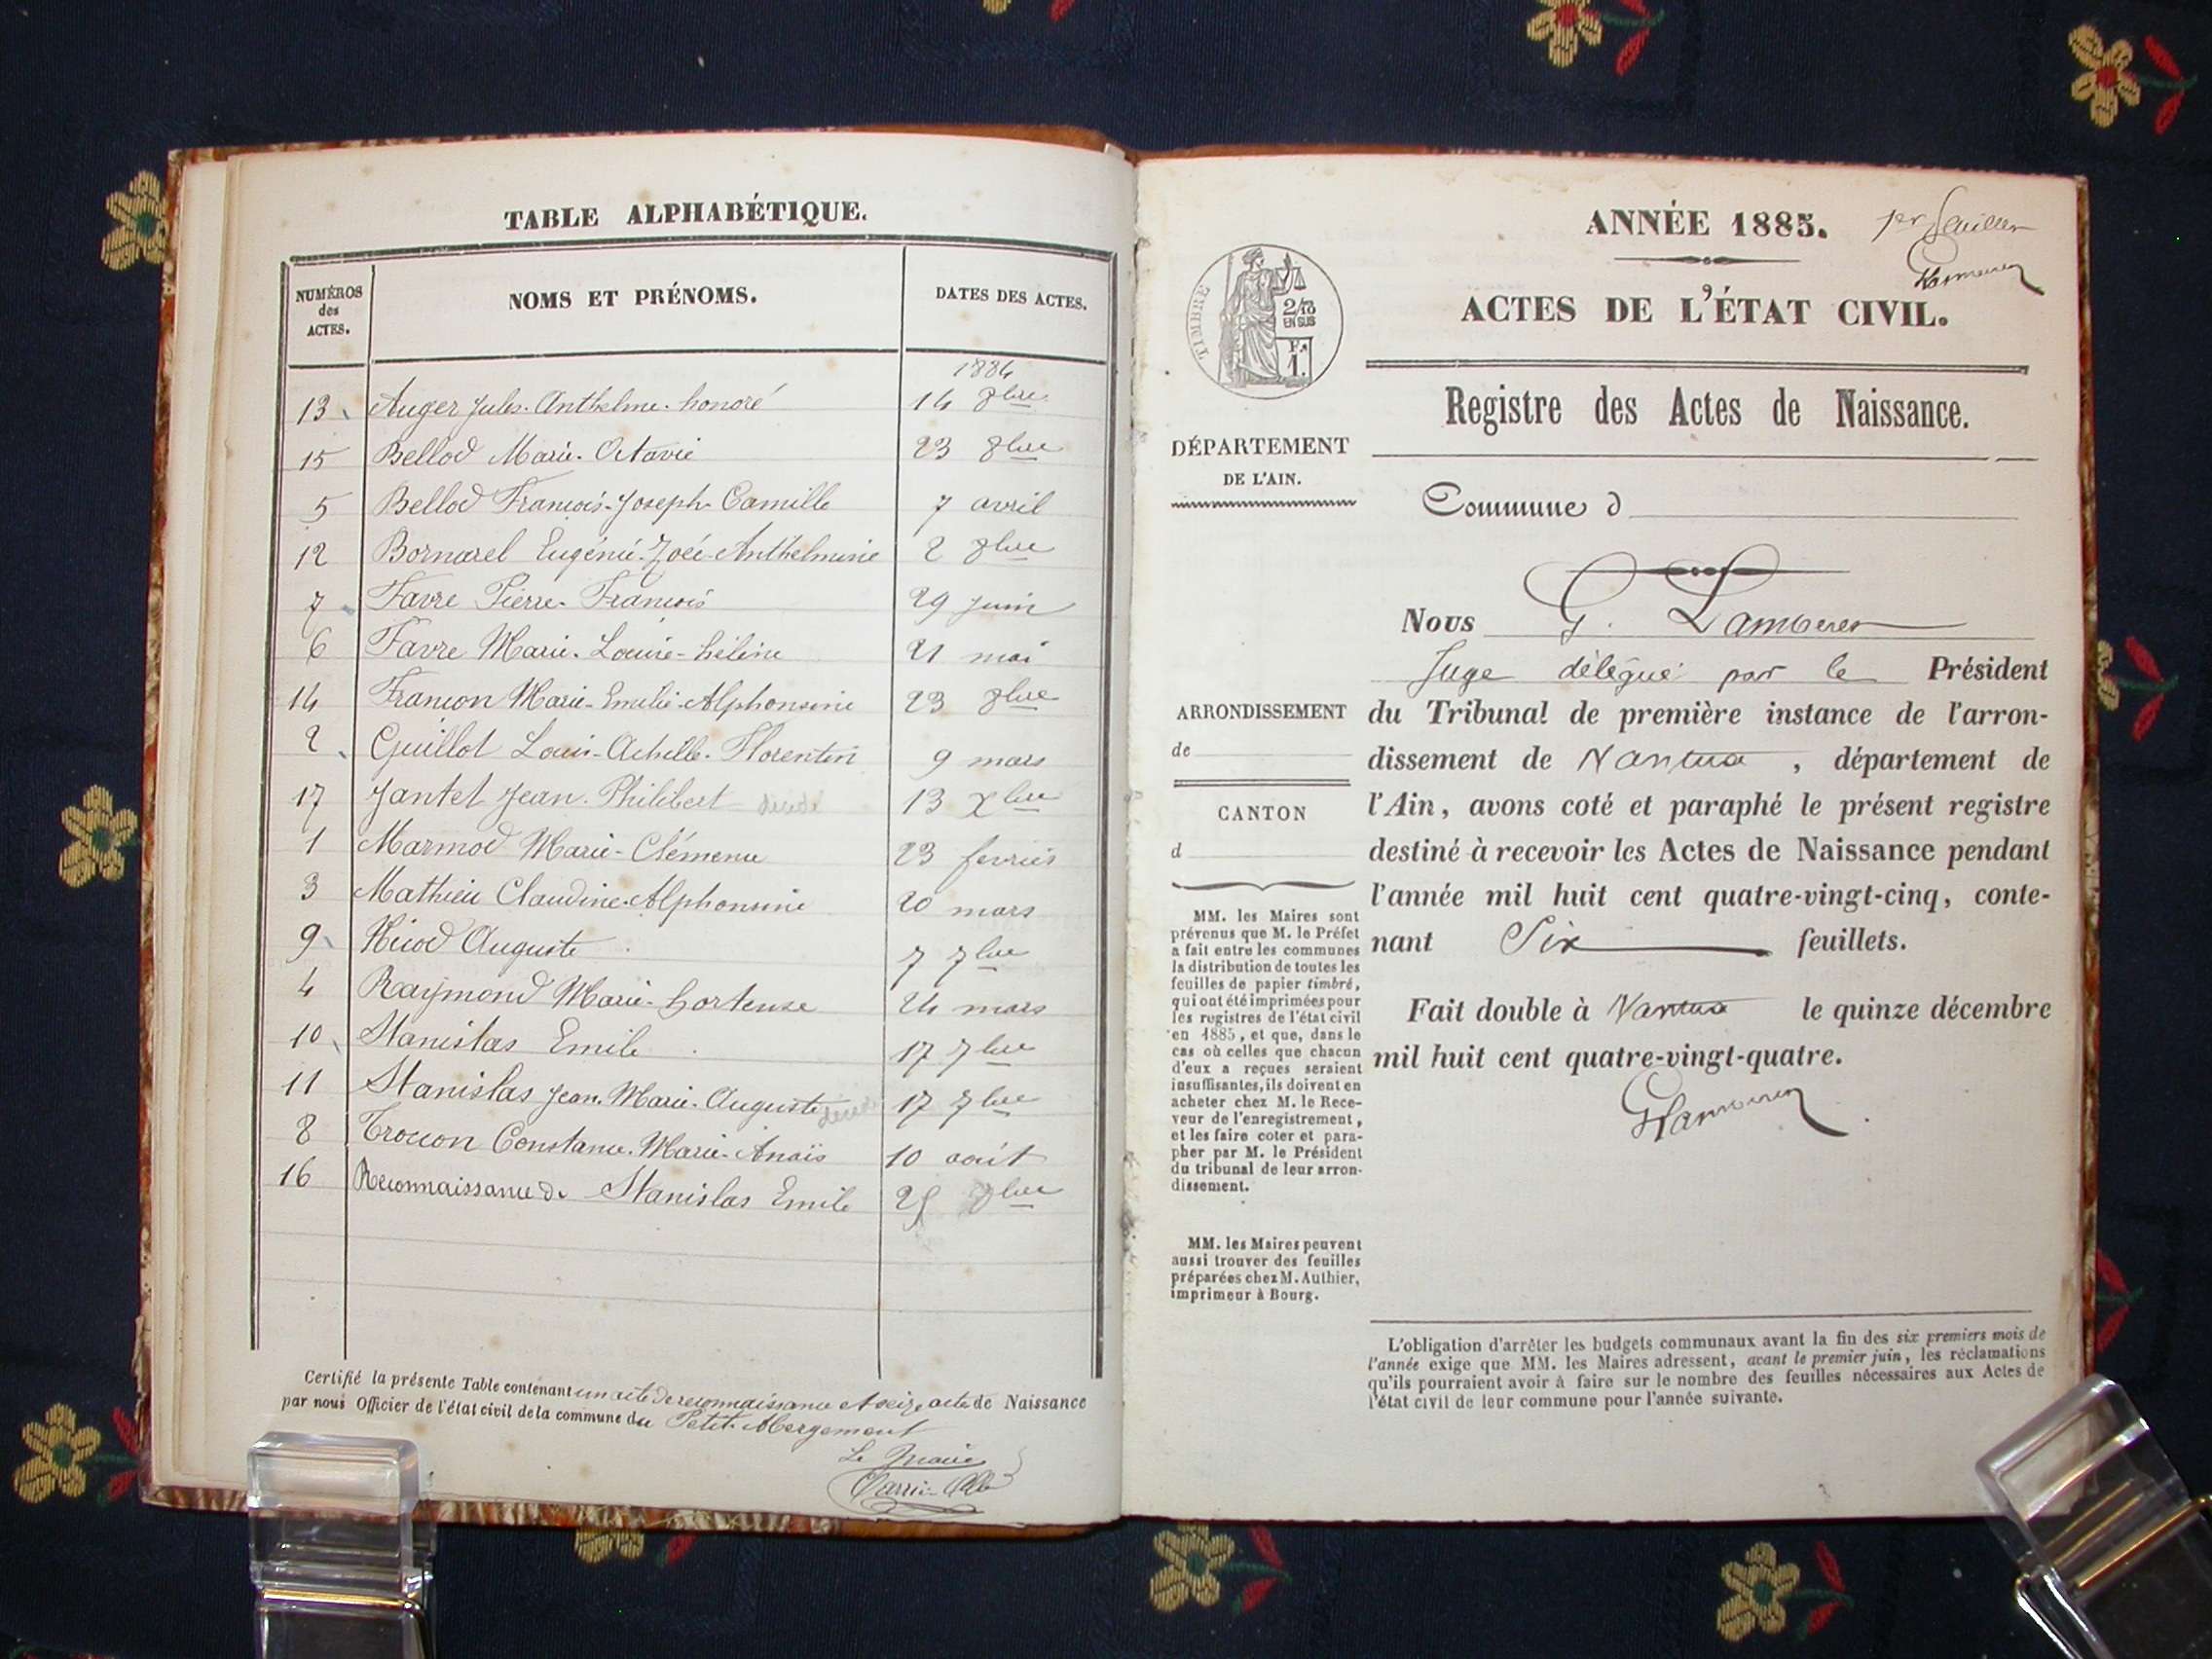 TABLE ALPHABÉTIQUE.
NUMÉROS des ACTES.
NOMS ET PRÉNOMS.
DATES DES ACTES.
1884
13 Auger Jules-Anthelme-honoré 14 8bre
15 Bellod Marie-Octavie 23 8bre
5 Bellod François-Joseph-Camille 7 avril
12 Bornarel Eugénie-Zoée-Anthelmine 2 8bre
7 Favre Pierre-François 29 juin
6 Favre Marie-Louise-hélène 21 mai
14 Françon Marie-Emelie-Alphonsine 23 8bre
2 Guillot Louis-Achille-Florentin 9 mars
17 Jantet Jean-Philibert décédé 13 Xbre
1 Marmod Marie-Clémence 23 fevrier
3 Mathieu Claudine-Alphonsine 20 mars
9 Nicod Auguste 7 7bre
4 Raymond Marie-hortense 24 mars
10 Stanislas Emile 17 7bre
11 Stanislas Jean-Marie-Auguste décédé 17 7bre
8 Trocon Constance-Marie-Anaïs 10 août
16 Reconnaissance de Stanislas Emile 25 8bre
Certifié la présente Table contenant un acte de reconnaissance et seize actes de Naissance
par nous Officier de l'état civil de la commune du Petit-Abergement
Le Maire
ANNÉE 1885.
1er feuillet
ACTES DE L'ÉTAT CIVIL.
TIMBRE
2/10
EN SUS
1.
Registre des Actes de Naissance.
DÉPARTEMENT
DE L'AIN.
Commune d
Nous G. Lamberet
Juge délégué par le Président
ARRONDISSEMENT
de
CANTON
d
du Tribunal de première instance de l'arron-
dissement de Nantua, département de
l'Ain, avons coté et paraphé le présent registre
destiné à recevoir les Actes de Naissance pendant
l'année mil huit cent quatre-vingt-cinq, conte-
nant Six feuillets.
Fait double à Nantua le quinze décembre
mil huit cent quatre-vingt-quatre.
MM. les Maires sont
prévenus que M. le Préfet
a fait entre les communes
la distribution de toutes les
feuilles de papier timbré,
qui ont été imprimées pour
les registres de l'état civil
en 1885, et que, dans le
cas où celles que chacun
d'eux a reçues seraient
insuffisantes, ils doivent en
acheter chez M. le Rece-
veur de l'enregistrement,
et les faire coter et para-
pher par M. le Président
du tribunal de leur arron-
dissement.
MM. les Maires peuvent
aussi trouver des feuilles
préparées chez M. Authier,
imprimeur à Bourg.
L'obligation d'arrêter les budgets communaux avant la fin des six premiers mois de
l'année exige que MM. les Maires adressent, avant le premier juin, les réclamations
qu'ils pourraient avoir à faire sur le nombre des feuilles nécessaires aux Actes de
l'état civil de leur commune pour l'année suivante.